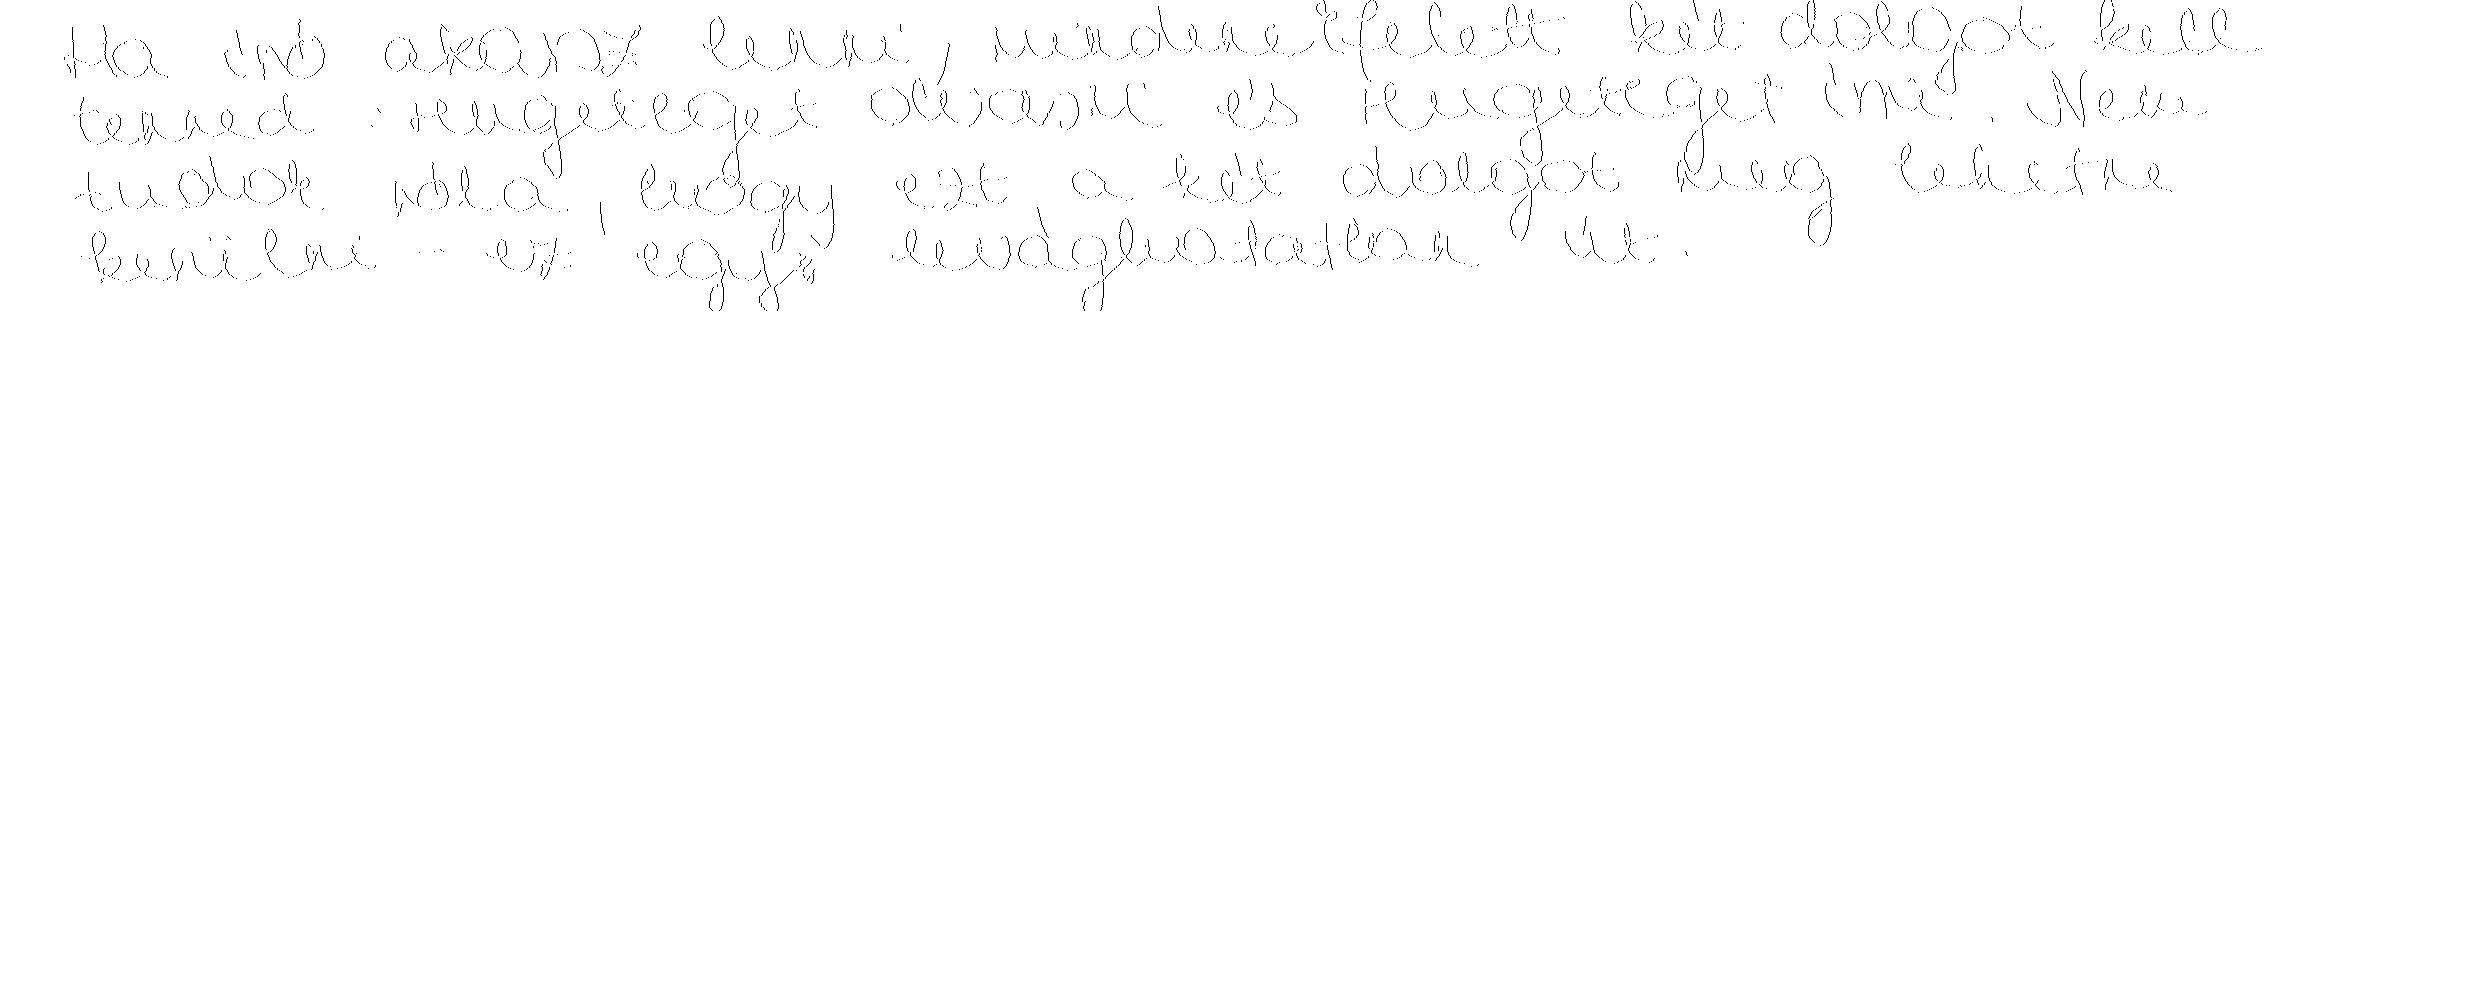 Ha író akarsz lenni, mindenekfelett két dolgot kell
tenned: rengeteget olvasni és rengeteget írni. Nem
tudok róla, hogy ezt a két dolgot meg lehetne
kerülni - ez egyfs levághatatlan út.